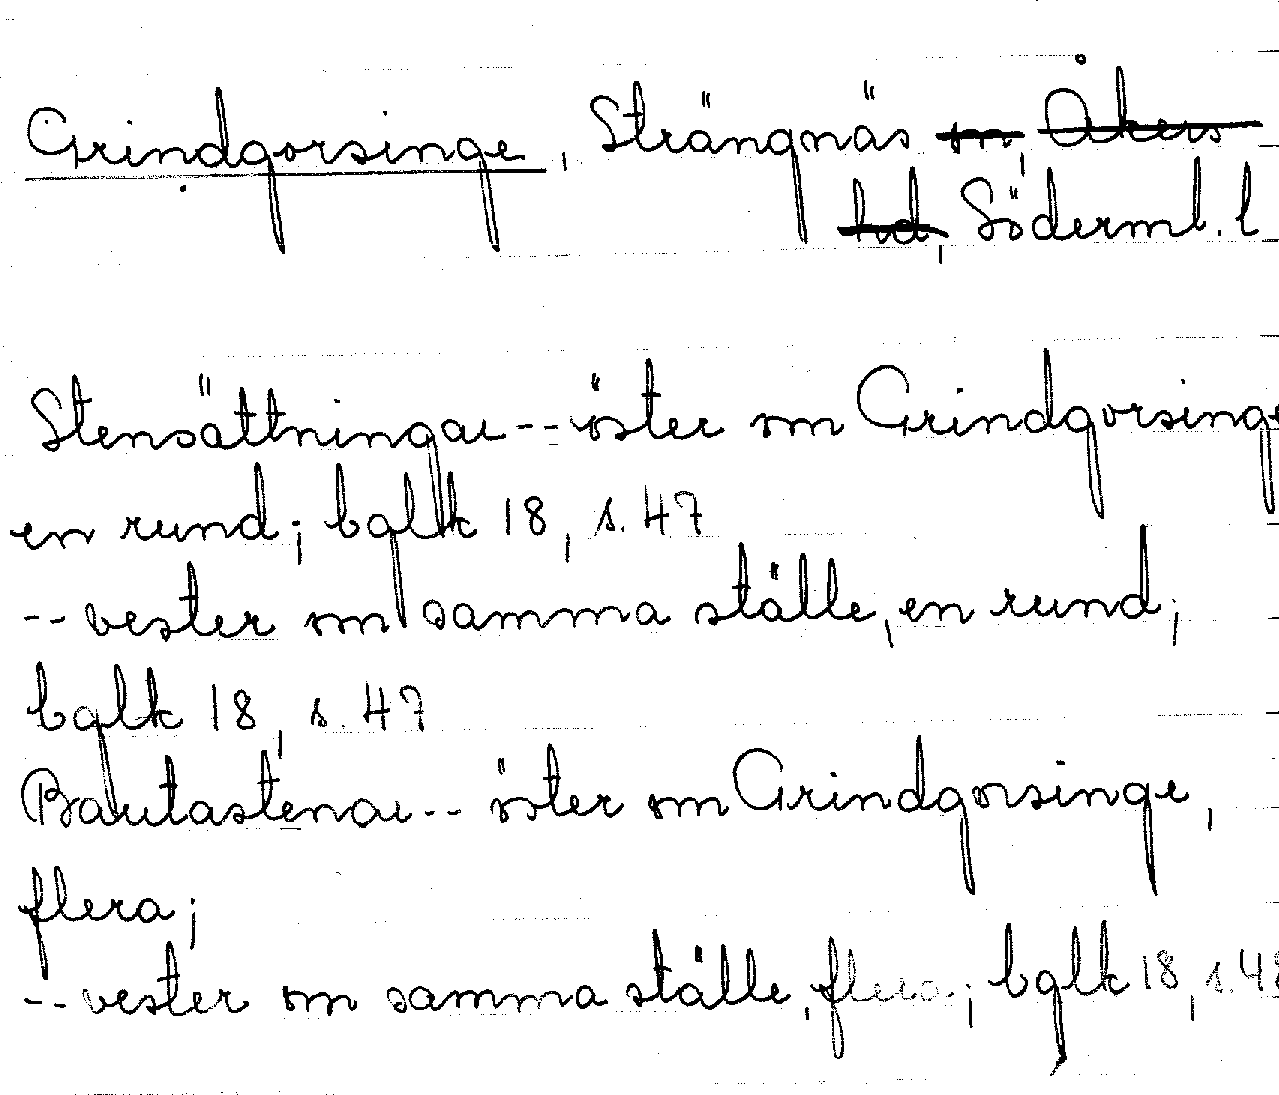 Grindgorsinge, Strängnäs sn, Åkers
hd, Söderml. l
Stensättningar -- öster om Grindgorsinge
en rund; bglk 18, s. 47
-- vester om samma ställe, en rund;
bglk 18, s. 47
Bautastenar -- öster om Grindgorsinge,
flera;
-- vester om samma ställe, flera; bglk 18, s. 48